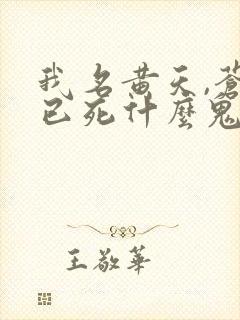 我名黄天,蒼
已死什麼鬼
王敬華